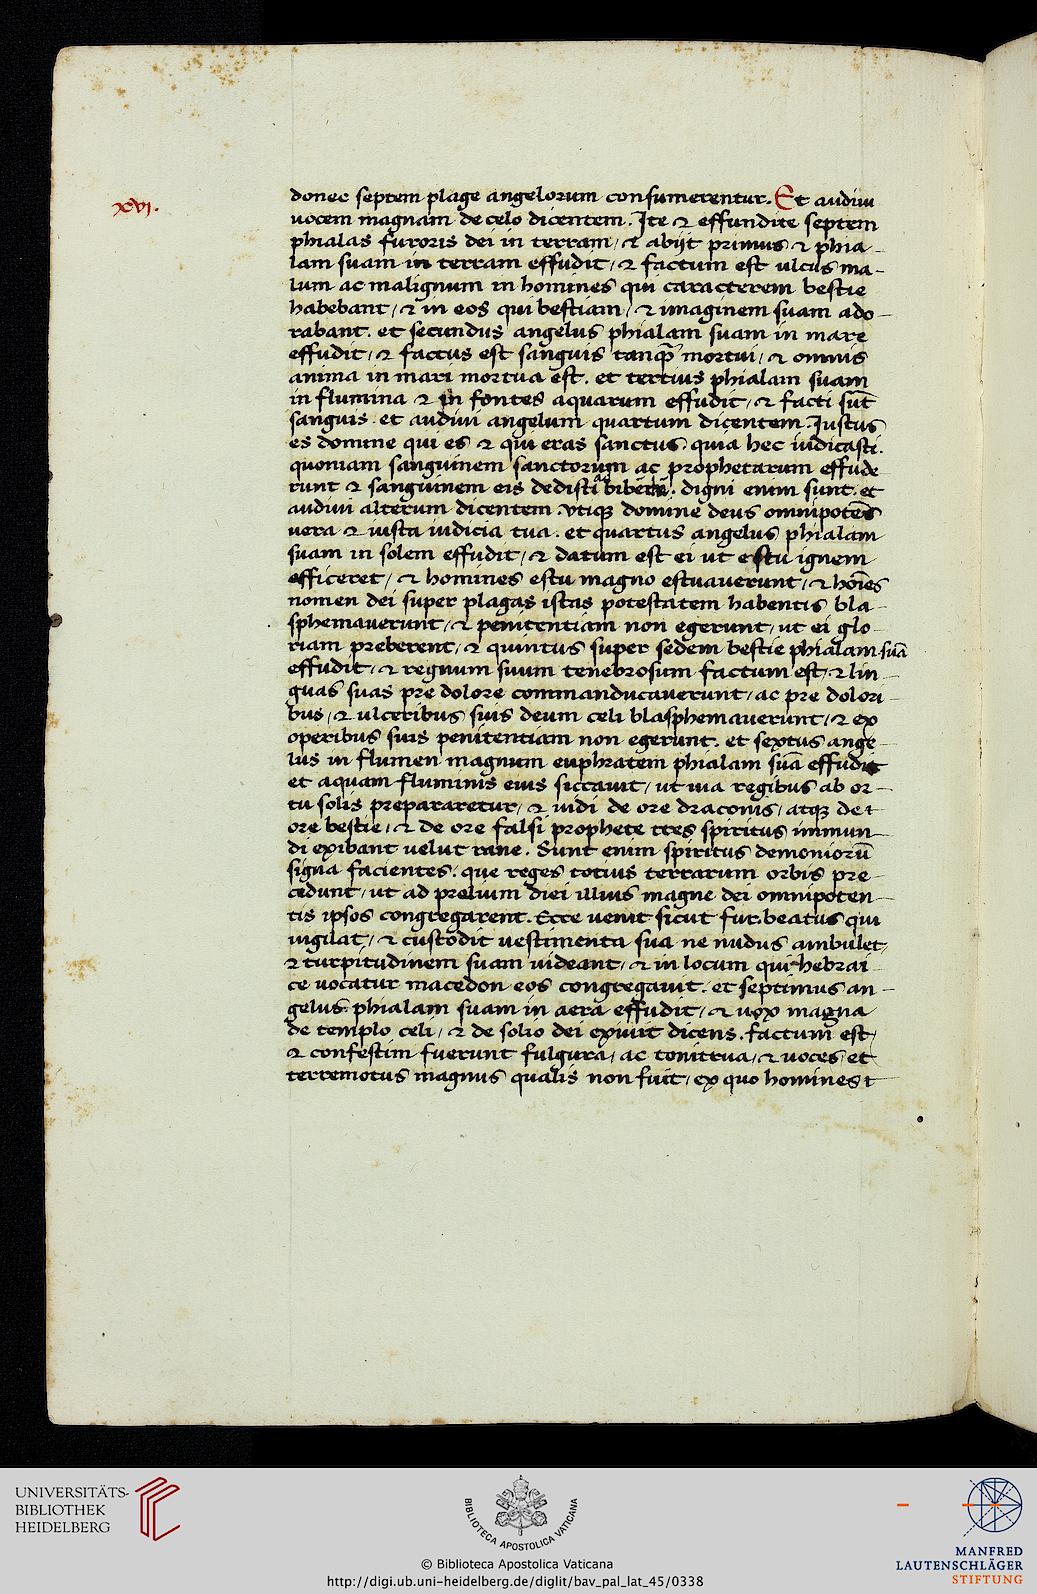 xvi.
donec septem plage angelorum consumerentur. Et audiui
uocem magnam de celo dicentem. Ite & effundite septem
phialas furoris dei in terram, & abijt primus & phia-
lam suam in terram effudit, & factum est ulcus ma-
lum ac malignum in homines qui caracterem bestie
habebant, & in eos qui bestiam, & imaginem suam ado-
rabant. et secundus angelus phialam suam in mare
effudit, & factus est sanguis tanq̃ mortui, & omnis
anima in mari mortua est. et tertius phialam suam
in flumina & in fontes aquarum effudit, & facti sūt
sanguis. et audiui angelum quartum dicentem. Iustus
es domine qui es & qui eras sanctus. quia hec iudicasti.
quoniam sanguinem sanctorum ac prophetarum effude
runt & sanguinem eis dedisti bibere. digni enim sunt. et
audiui alterum dicentem. Vtiqꝫ domine deus omnipotēs
uera & iusta iudicia tua. et quartus angelus phialam
suam in solem effudit, & datum est ei ut estu ignem
efficeret, & homines estu magno estuauerunt, & hoīes
nomen dei super plagas istas potestatem habentis bla-
sphemauerunt, & penitentiam non egerunt, ut ei glo-
riam preberent, & quintus super sedem bestie phialam suā
effudit, & regnum suum tenebrosum factum est, & lin-
guas suas pre dolore commanducauerunt, ac pre dolori-
bus, & ulceribus suis deum celi blasphemauerunt, & ex
operibus suis penitentiam non egerunt. et sextus ange-
lus in flumen magnum euphratem phialam suā effudit
et aquam fluminis eius siccauit, ut uia regibus ab or-
tu solis prepararetur, & uidi de ore draconis, atqꝫ de
ore bestie, & de ore falsi prophete tres spiritus immun-
di exibant uelut rane. Sunt enim spiritus demoniorū
signa facientes. que reges totius terrarum orbis pre-
cedunt, ut ad prelium diei illius magne dei omnipoten-
tis ipsos congregarent. Ecce uenit sicut fur. beatus qui
uigilat, & custodit uestimenta sua ne nudus ambulet,
& turpitudinem suam uideant, & in locum qui hebrai-
ce uocatur macedon eos congregauit. et septimus an-
gelus phialam suam in aera effudit, & uox magna
de templo celi, & de solio dei exiuit dicens. factum est,
& confestim fuerunt fulgura, ac tonitrua, & uoces, et
terremotus magnus qualis non fuit, ex quo homines
UNIVERSITÄTS-
BIBLIOTHEK
HEIDELBERG
BIBLIOTECA APOSTOLICA VATICANA
© Biblioteca Apostolica Vaticana
http://digi.ub.uni-heidelberg.de/diglit/bav_pal_lat_45/0338
MANFRED
LAUTENSCHLÄGER
STIFTUNG